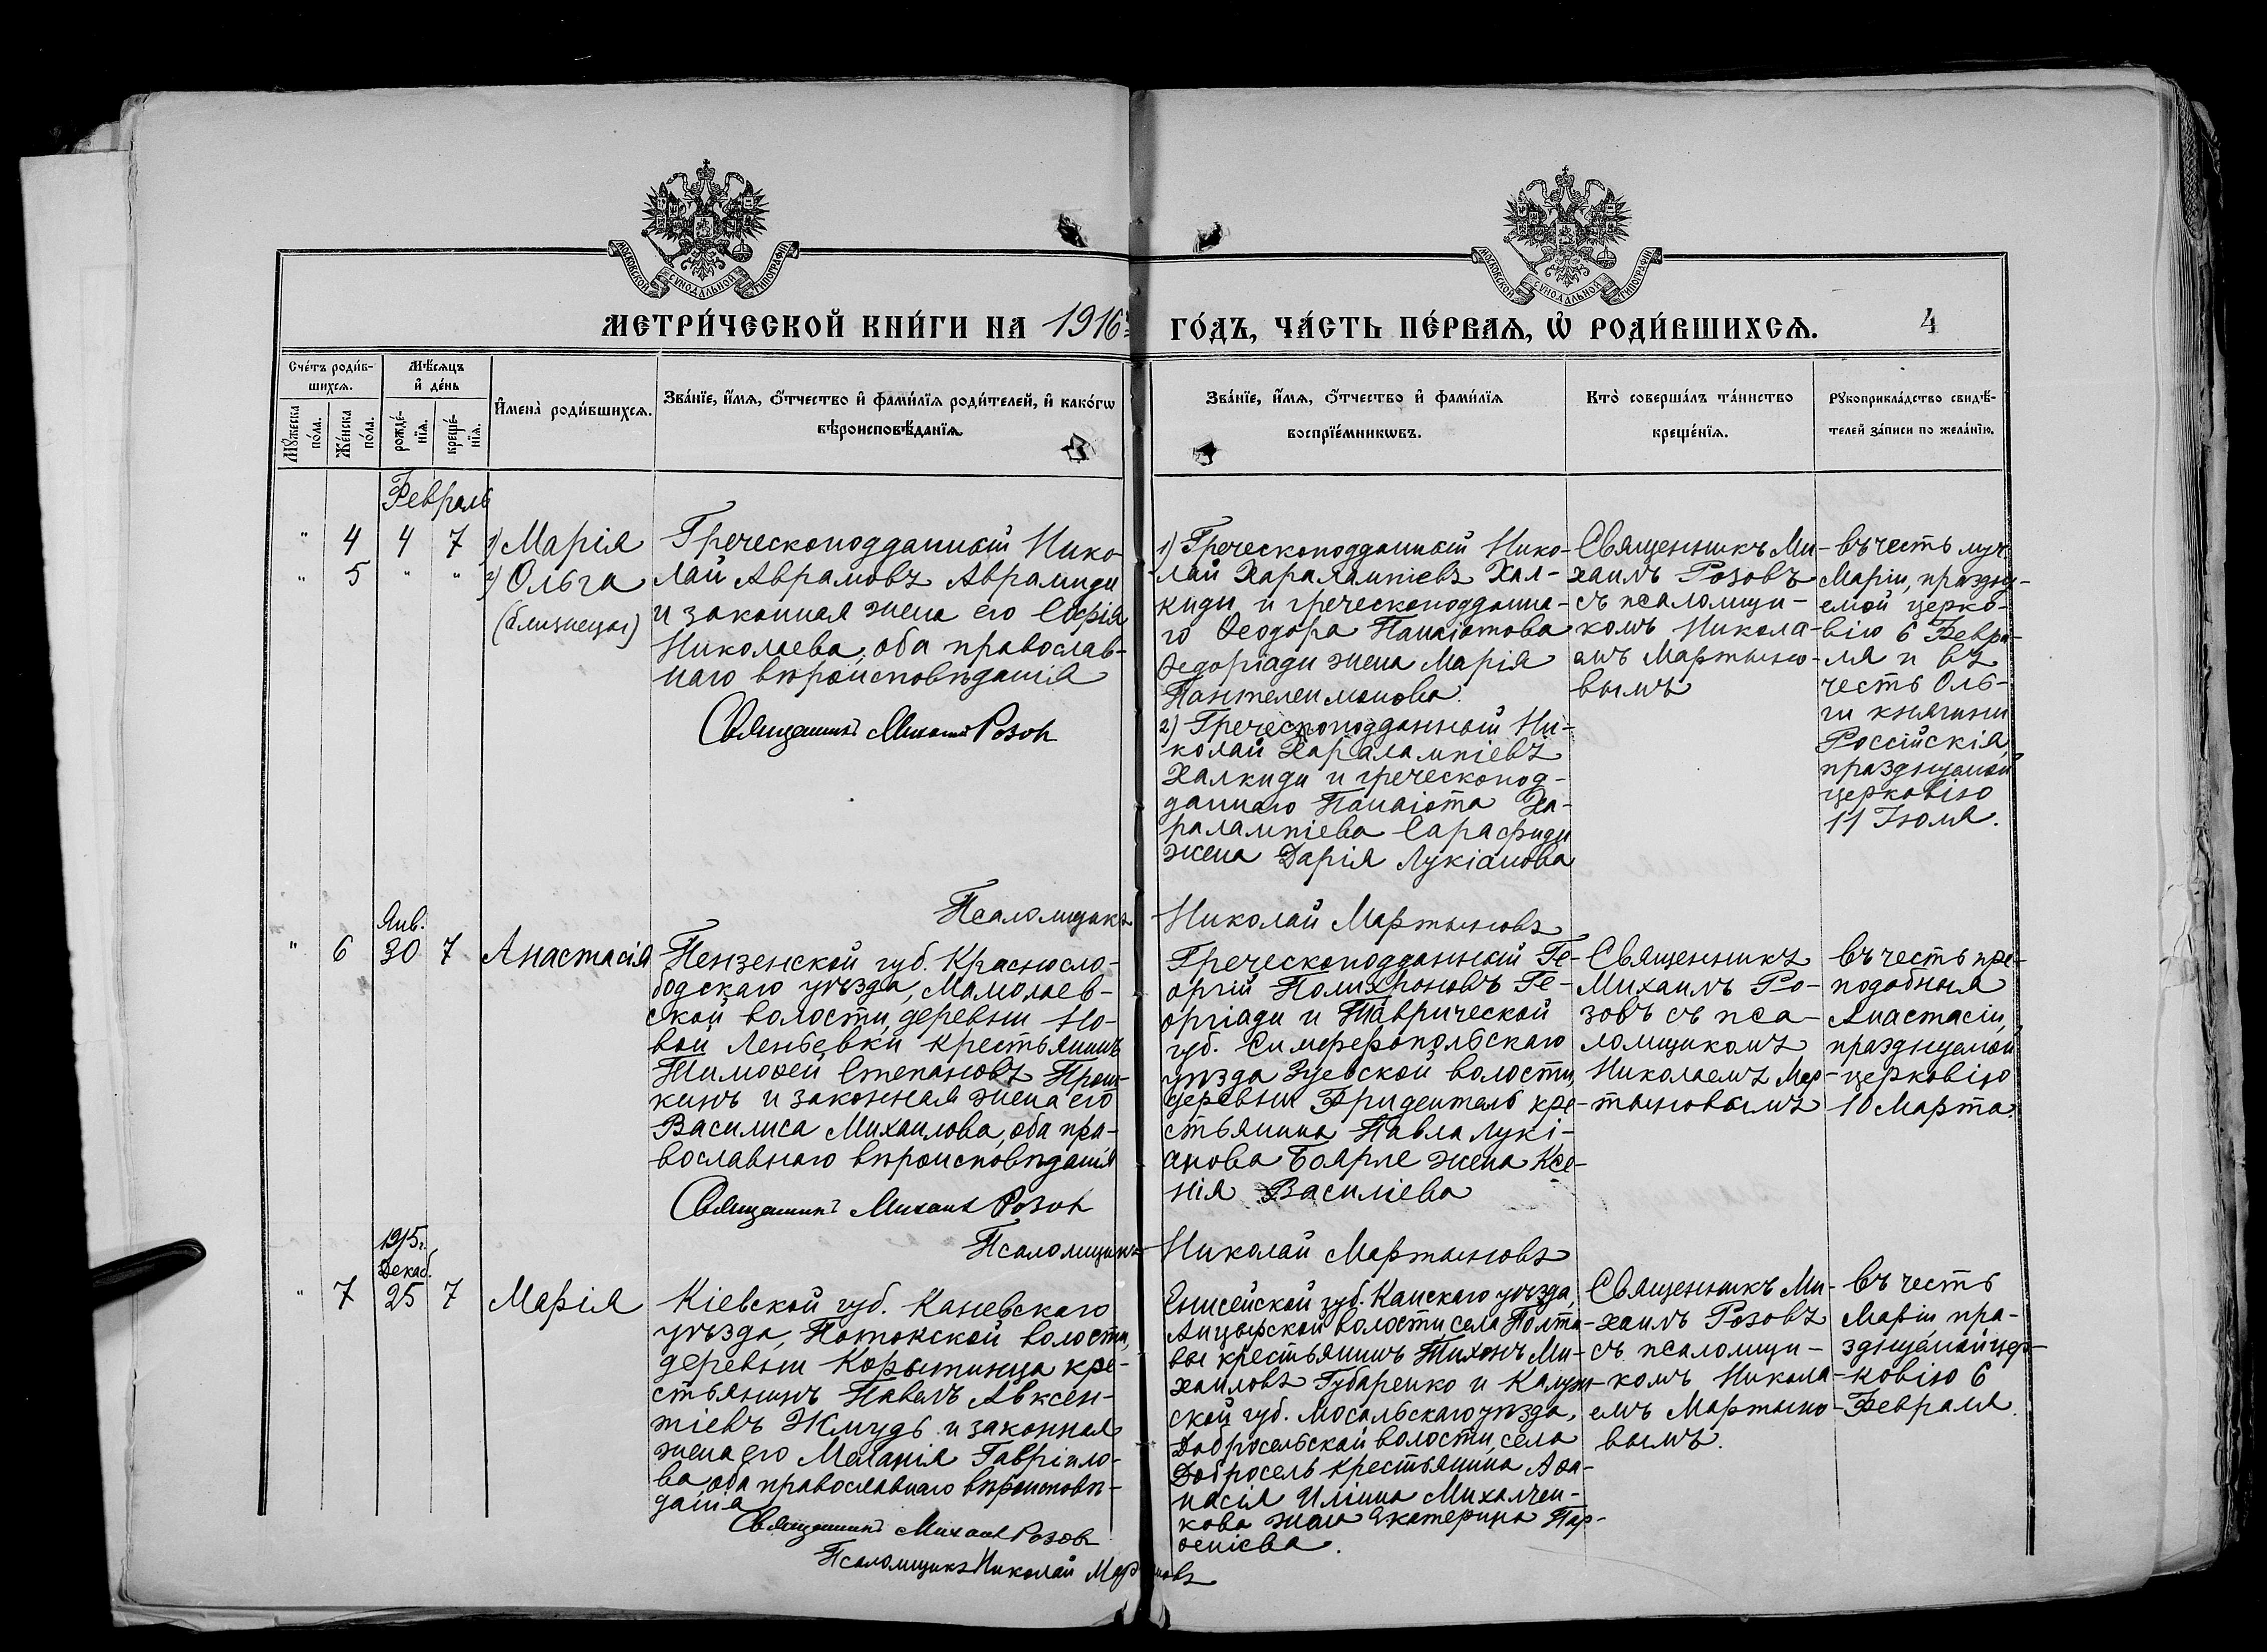 МОСКОВСКОЙ СѴНОДАЛЬНОЙ ТИПОГРАФІИ
МОСКОВСКОЙ СѴНОДАЛЬНОЙ ТИПОГРАФІИ
МЕТРИ́ЧЕСКОЙ КНИ́ГИ НА 1916й
ГО́ДЪ, ЧА́СТЬ ПЕ́РВАѦ, Ѡ҆ РОДИ́ВШИХСѦ.
4
Счéтъ роди́в-
шихсѧ.
Мѣ́сѧцъ
и҆ де́нь
Мꙋ́жеска
по́ла.
Же́нска
по́ла.
рожде́-
нїѧ.
креще́-
нїѧ.
И҆мена̀ роди́вшихсѧ.
Зва́нїе, и҆́мѧ, ѻ҆́тчество и҆ фами́лїѧ роди́телей, и҆ како́гѡ
вѣроисповѣ́данїѧ.
Зва́нїе, и҆́мѧ, ѻ҆́тчество и҆ фами́лїѧ
воспрїе́мникѡвъ.
Кто̀ соверша́лъ та́инство
креще́нїѧ.
Рꙋкоприкла́дство свидѣ́-
телей за́писи по жела́нїю.
Февраль
" 4 4 7 1) Марія
" 5 " " 2) Ольга
(близнецы)
Греческоподданный Нико-
лай Аврамовъ Аврамиди
и законная жена его Софія
Николаева, оба православ-
наго вѣроисповѣданія
Священникъ Михаилъ Розовъ
1) Греческоподданный Нико-
лай Харалампіевъ Хал-
киди и греческоподданна-
го Ѳеодора Панаіотова
Ѳедоріади жена Марія
Пантелеимонова.
2) Греческоподданный Ни-
колай Харалампіевъ
Халкиди и греческопод-
даннаго Панаіота Ха-
ралампіева Сарафиди
жена Дарія Лукіанова
Священникъ Ми-
хаилъ Розовъ
съ псаломщи-
комъ Никола-
емъ Мартыно-
вымъ
въ честь муч.
Маріи, праздну-
емой церко-
вію 6 Февра-
ля и въ
честь Оль-
ги княгини
Россійскія,
празднуемой
церковію
11 Іюля.
Псаломщикъ Николай Мартыновъ
Янв.
" 6 30 7 Анастасія
Пензенской губ. Краснослo-
бодскаго уѣзда, Мамолаев-
ской волости, деревни Но-
вой Леньевки крестьянинъ
Тимоѳей Степановъ Прош-
кинъ и законная жена его
Василиса Михаилова, оба пра-
вославнаго вѣроисповѣданія
Священникъ Михаилъ Розовъ
Греческоподданный Ге-
оргій Полихроновъ Ге-
оргіади и Таврической
губ. Симферопольскаго
уѣзда Зуевской волости,
деревни Фриденталь кре-
стьянина Павла Лукі-
анова Боярле жена Ксе-
нія Василіева
Священникъ
Михаилъ Ро-
зовъ съ пса-
ломщикомъ
Николаемъ Мар-
тыновымъ
въ честь пре-
подобныя
Анастасіи,
празднуемой
церковію
10 Марта.
Псаломщикъ Николай Мартыновъ
1915 г.
Декаб.
" 7 25 7 Марія
Кіевской губ. Каневскаго
уѣзда, Потокской волости,
деревни Корытища кре-
стьянинъ Павелъ Авксен-
тіевъ Жмудь и законная
жена его Меланія Гавріило-
ва, оба православнаго вѣроисповѣ-
данія
Священникъ Михаилъ Розовъ
Псаломщикъ Николай Мартыновъ
Енисейской губ. Канскаго уѣзда,
Анцырской волости, села Полта-
вы крестьянинъ Тихонъ Ми-
хаиловъ Губаренко и Калуж-
ской губ. Мосальскаго уѣзда,
Добросельской волости, села
Добросель крестьянина Аѳа-
насія Иліина Михалчен-
кова жена Екатерина Пар-
ѳеніева.
Священникъ Ми-
хаилъ Розовъ
съ псаломщи-
комъ Никола-
емъ Мартыно-
вымъ.
въ честь
Маріи, пра-
зднуемой цер-
ковію 6
Февраля.